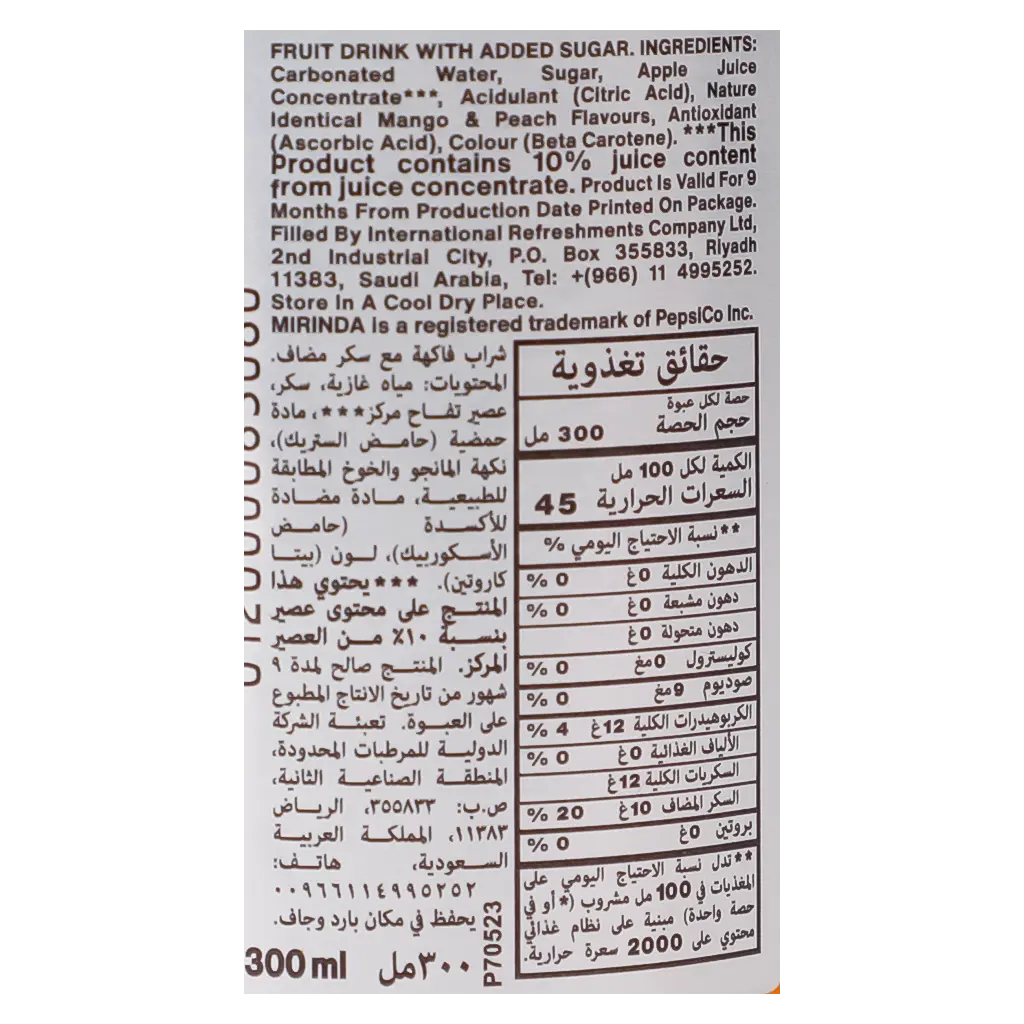 FRUIT DRINK WITH ADDED SUGAR. INGREDIENTS:
Carbonated Water, Sugar, Apple Juice
Concentrate***, Acidulant (Citric Acid), Nature
Identical Mango & Peach Flavours, Antioxidant
(Ascorbic Acid), Colour (Beta Carotene). ***This
Product contains 10% juice content
from juice concentrate. Product Is Valid For 9
Months From Production Date Printed On Package.
Filled By International Refreshments Company Ltd,
2nd Industrial City, P.O. Box 355833, Riyadh
11383, Saudi Arabia, Tel: +(966) 11 4995252.
Store In A Cool Dry Place.
MIRINDA is a registered trademark of PepsiCo Inc.
شراب فاكهة مع سكر مضاف.
المحتويات: مياه غازية، سكر،
عصير تفاح مركز***، مادة
حمضية (حامض الستريك)،
نكهة المانجو والخوخ المطابقة
للطبيعية، مادة مضادة
للأكسدة (حامض
الأسكوربيك)، لون (بيتا
كاروتين). ***يحتوي هذا
المنتج على محتوى عصير
بنسبة ١٠٪ من العصير
المركز. المنتج صالح لمدة ٩
شهور من تاريخ الانتاج المطبوع
على العبوة. تعبئة الشركة
الدولية للمرطبات المحدودة،
المنطقة الصناعية الثانية،
ص.ب: ٣٥٥٨٣٣، الرياض
١١٣٨٣، المملكة العربية
السعودية، هاتف:
٠٠٩٦٦١١٤٩٩٥٢٥٢
يحفظ في مكان بارد وجاف.
300 ml ٣٠٠ مل
P70523
حقائق تغذوية
حصة لكل عبوة
حجم الحصة 300 مل
الكمية لكل 100 مل
السعرات الحرارية 45
**نسبة الاحتياج اليومي %
الدهون الكلية 0غ 0 %
دهون مشبعة 0غ 0 %
دهون متحولة 0غ
كوليسترول 0مغ 0 %
صوديوم 9مغ 0 %
الكربوهيدرات الكلية 12غ 4 %
الألياف الغذائية 0غ 0 %
السكريات الكلية 12غ
السكر المضاف 10غ 20 %
بروتين 0غ 0 %
**تدل نسبة الاحتياج اليومي على
المغذيات في 100 مل مشروب (*أو في
حصة واحدة) مبنية على نظام غذائي
محتوي على 2000 سعرة حرارية.